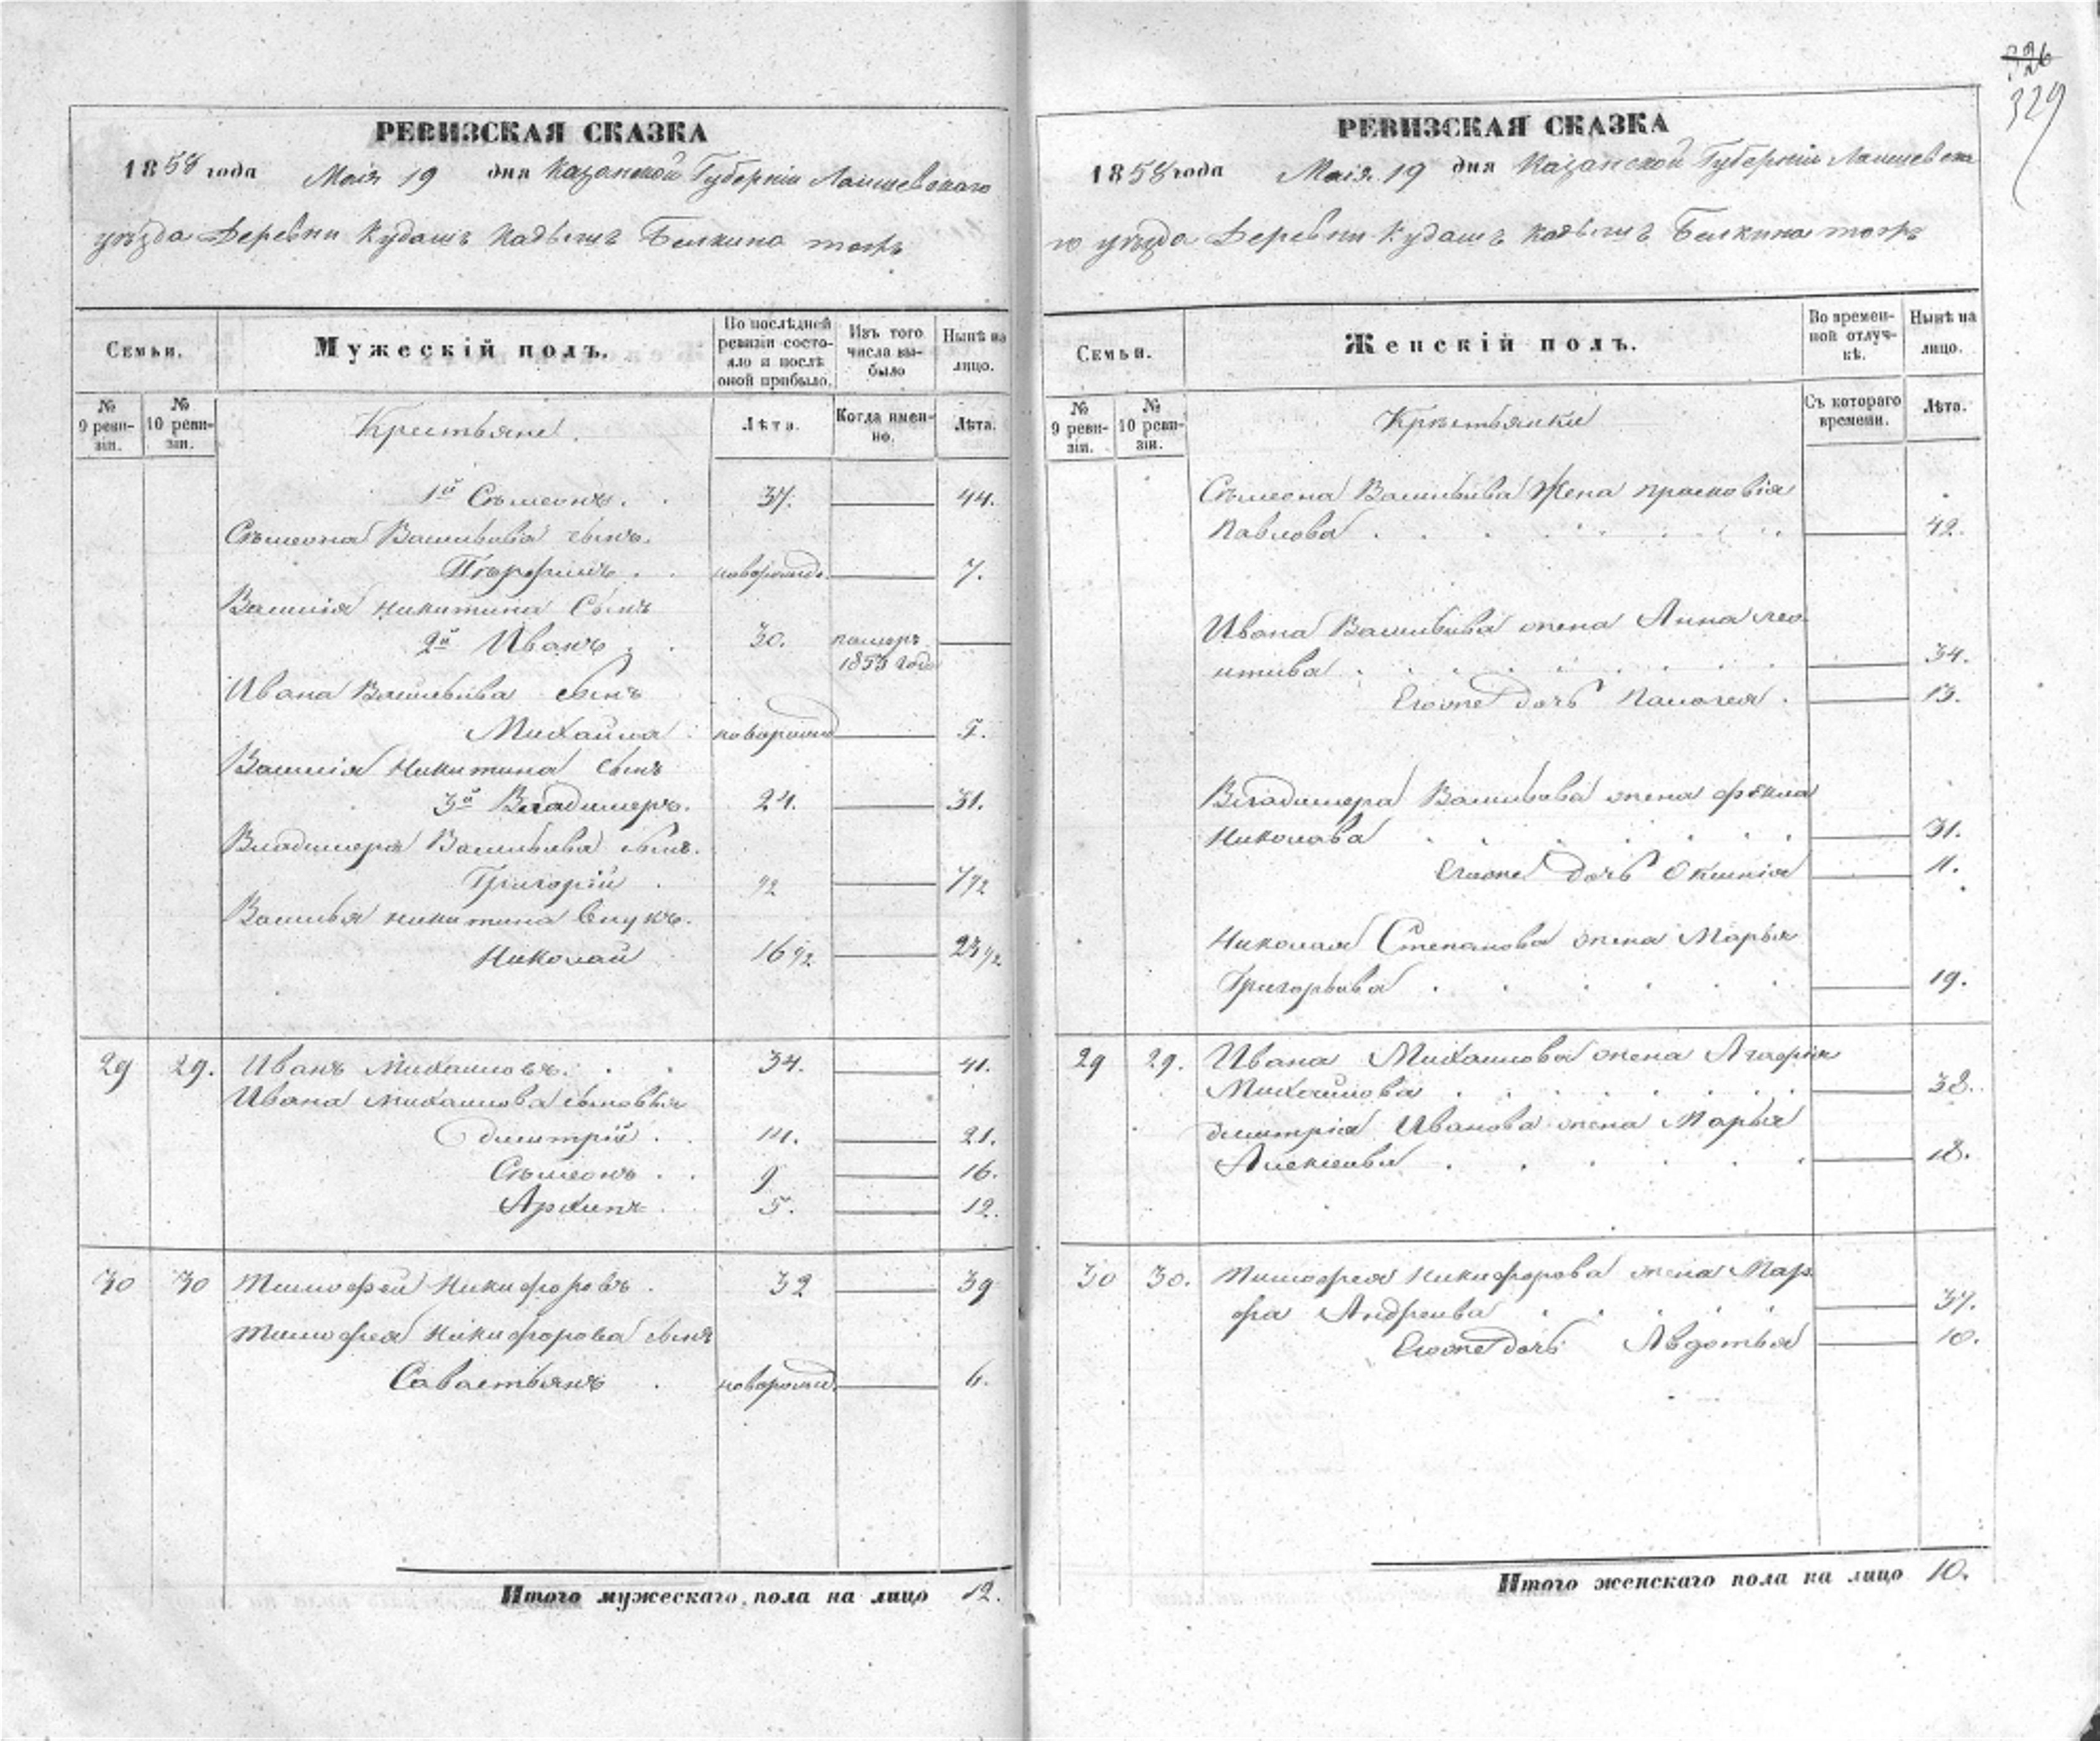 326
329
РЕВИЗСКАЯ СКАЗКА
1858 года Маія 19 дня Казанской Губерніи Лаишевскаго
уѣзда Деревни Кудашъ Белкина тожъ
Семьи.
Мужескій полъ.
По послѣдней ревизіи состояло и послѣ оной прибыло.
Изъ того числа выбыло
Нынѣ на лицо.
№ 9 ревизіи.
№ 10 ревизіи.
Крестьяне.
Лѣта.
Когда именно.
Лѣта.
1й Сѣмеонъ. 37. 44.
Сѣмеона Васильева сынъ.
Порфилъ. новорожд. 7.
Василія Никитина Сынъ
2й Иванъ 30. померъ
1853 года
Ивана Васильева сынъ
Михайла новорожд 5.
Василія Никитина сынъ
3й Владимеръ. 24. 31.
Владимера Васильева сынъ.
Григорій 1/2 7 1/2
Василья Никитина внукъ.
Николай 16 1/2 23 1/2
29 29. Иванъ Михаиловъ. 34. 41.
Ивана Михаилова сыновья
Дмитрій 14. 21.
Сѣмеонъ 9 16.
Архипъ 5. 12.
30 30 Тимофей Никифоровъ. 32 39
Тимофея Никифорова сынъ
Савастьянъ новорожд. 6.
Итого мужескаго пола на лицо 12.
РЕВИЗСКАЯ СКАЗКА
1858 года Маія 19 дня Казанской Губерніи Лаишевска
го уѣзда Деревни Кудашъ Белкина тожъ
Семьи.
Женскій полъ.
Во временной отлучкѣ.
Нынѣ на лицо.
№ 9 ревизіи.
№ 10 ревизіи.
Крестьянки
Съ котораго времени.
Лѣта.
Сѣмеона Васильева Жена прасковія
Павлова 42.
Ивана Васильева жена Анна лео
нтива 34.
Егоже дочь Палагея 13.
Владимера Васильева жена фекла
Николава 31.
Егоже дочь Оксинія 11.
Николая Степанова жена Марья
Григорьева 19.
29 29. Ивана Михаилова жена Агафья
Михайлова 38.
Дмитрія Иванова жена Марья
Алексеива 18.
30 30. Тимофея Никифорова жена Мар
фа Андреива 37.
Егоже дочь Авдотья 10.
Итого женскаго пола на лицо 10.